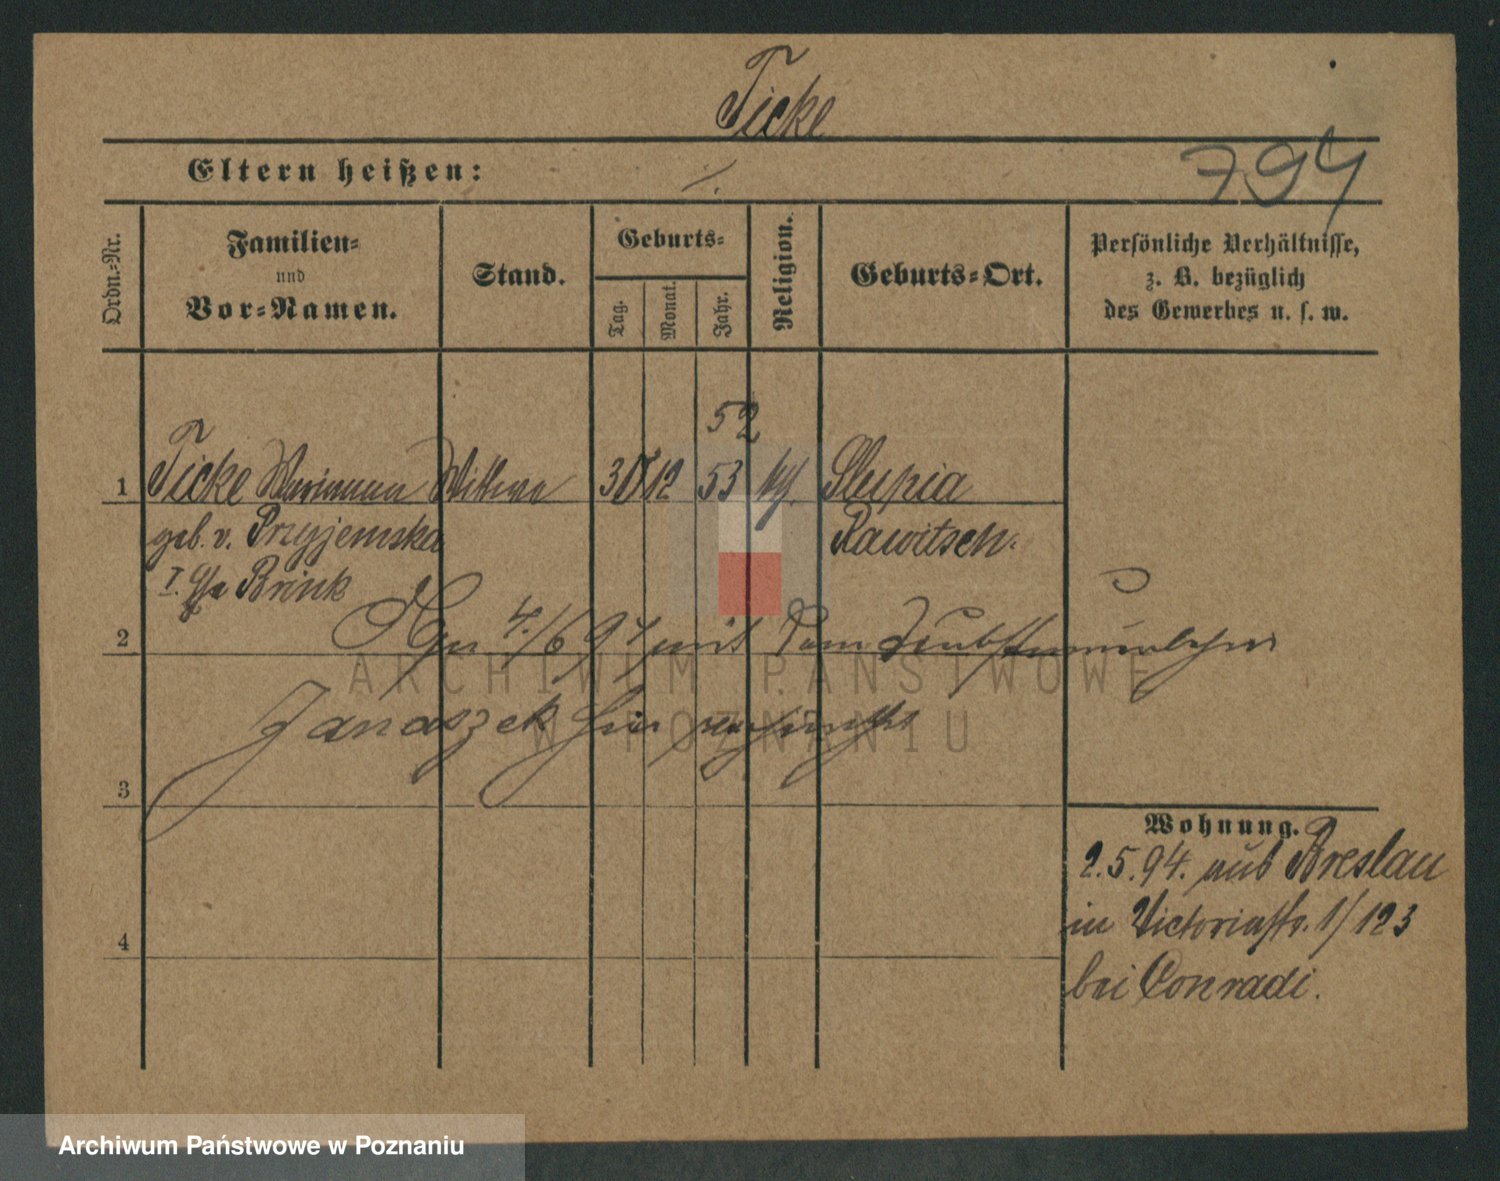 Ticke
Eltern heißen: ./.
794
Ordn.=Nr.
Familien=
und
Vor=Namen.
Stand.
Geburts=
Tag.
Monat.
Jahr.
Religion.
Geburts=Ort.
Persönliche Verhältnisse,
z. B. bezüglich
des Gewerbes u. s. w.
52
1 Ticke Marianna Wittwe 30 12 53 Slupia
geb. v. Przyjemska Rawitsch.
I. Brink
2 4./6 94 mit dem
Janaszek hier
3
Wohnung.
2.5.94. aus Breslau
in Victoriastr. 1/123
4
bei Conradi.
ARCHIWUM PAŃSTWOWE
W POZNANIU
Archiwum Państwowe w Poznaniu